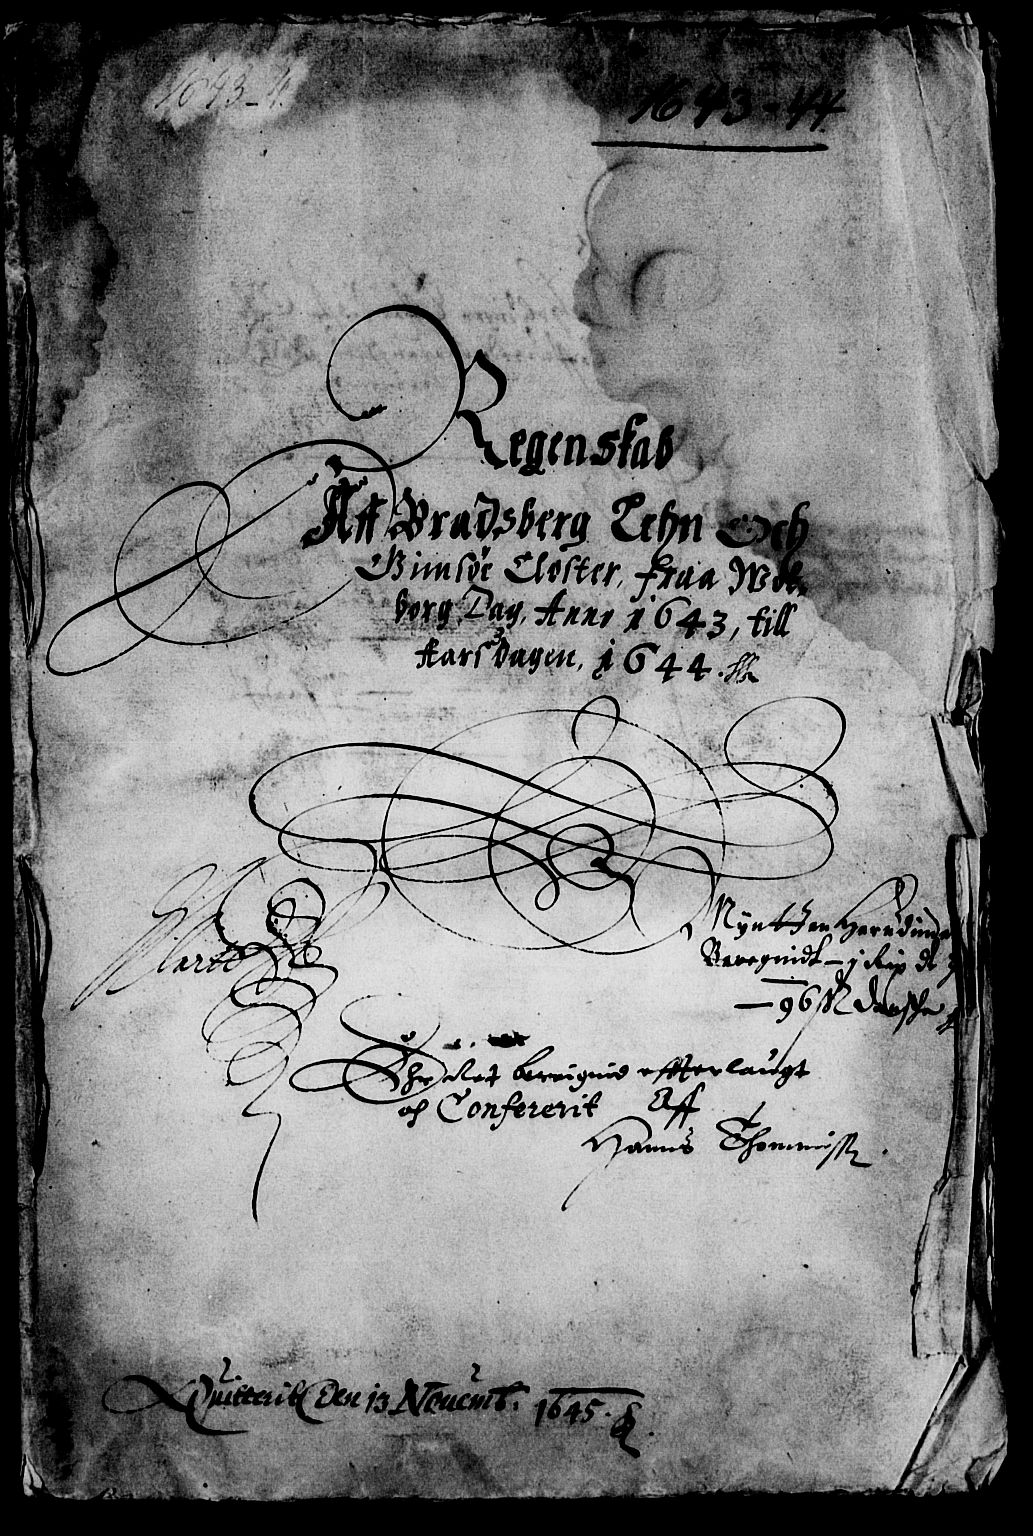 1643-4
1643-44
Regenskab
Aff Bradsberg Lehn Och
Gimsöe Closter, fraa Wol-
borg Dag, Anno 1643, till
Aarsdagen, 1644.
Klart
Beregnidt
96
dansche
beregnid effterlaugt
och Confererit Aff
Hanns Thommeß
Quitterit Den 13 Nouemb: 1645.